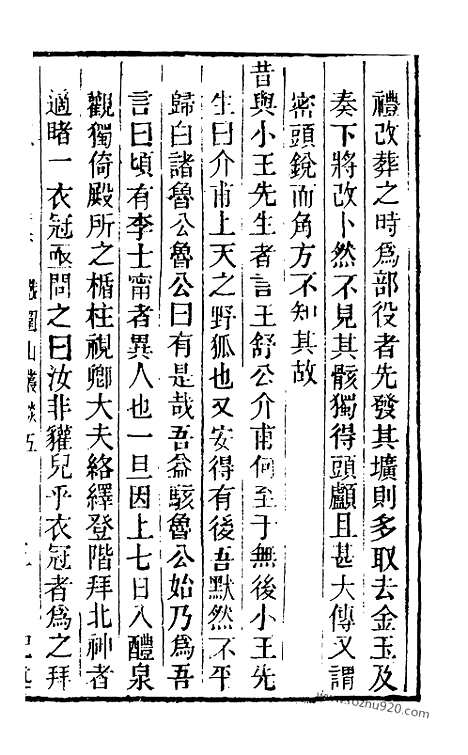 禮改葬之時爲部役者先發其壙則多取去金玉及
奏下將改卜然不見其骸獨得頭顱且甚大傳又謂
密頭銳而角方不知其故
昔與小王先生者言王舒公介甫何至于無後小王先
生曰介甫上天之野狐也又安得有後吾默然不平
歸白諸魯公魯公曰有是哉吾益駭魯公始乃爲吾
言曰頃有李士甯者異人也一旦因上七日入醴泉
觀獨倚殿所之楯柱視鄉大夫絡繹登階拜北神者
適睹一衣冠亟問之曰汝非獾兒乎衣冠者爲之拜
圍山叢談五
www.sozhu920.com